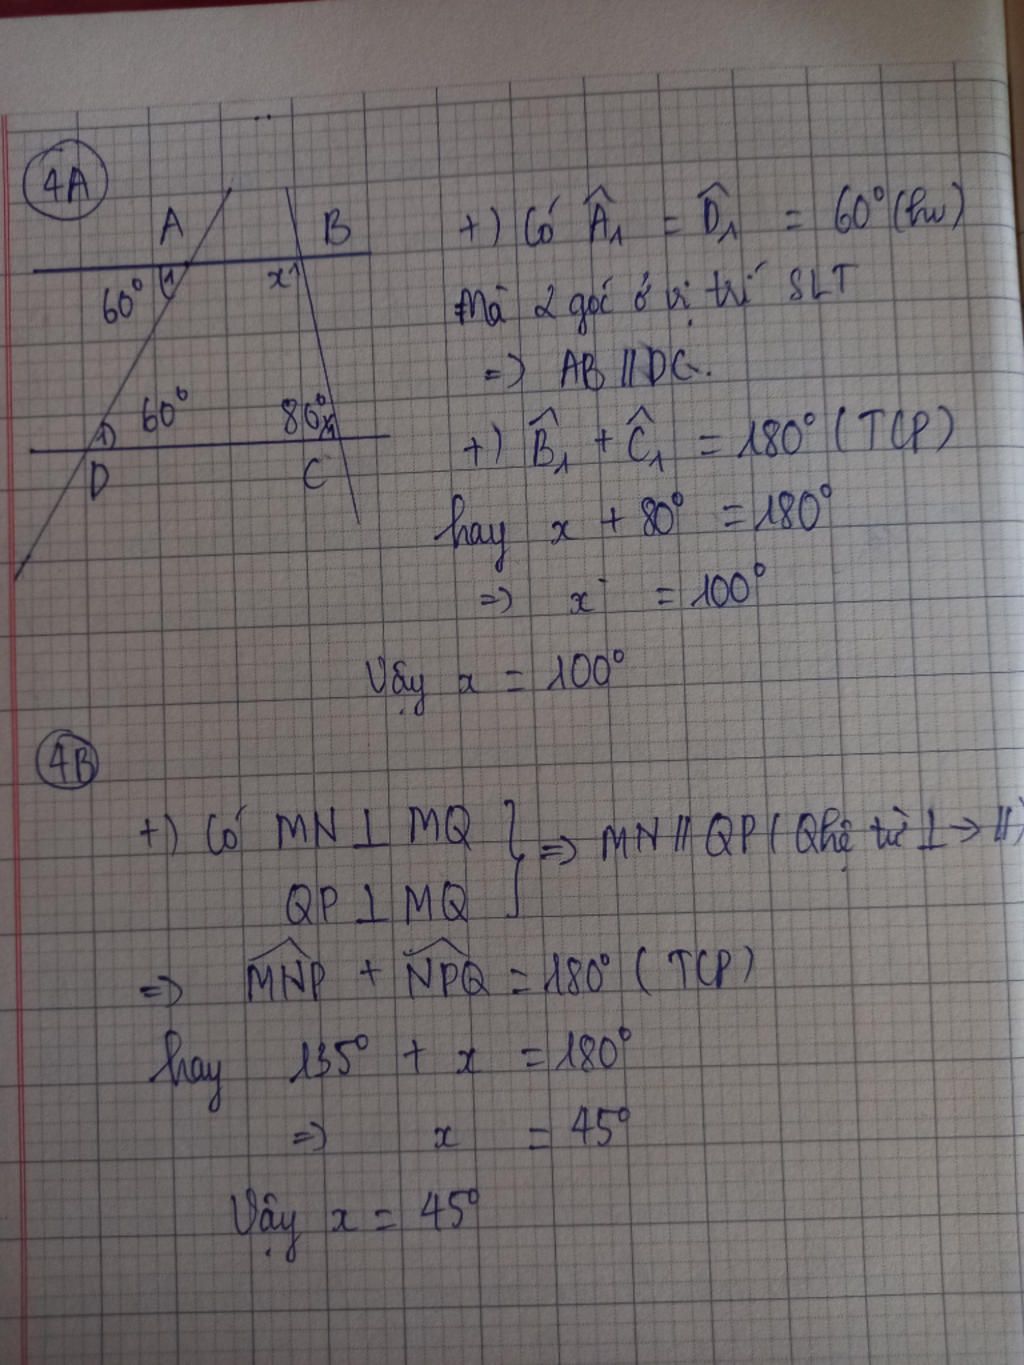 4A
A
B
60° 1
x 1
60°
80°
1
1
D
C
+) Có Â₁ = D̂₁ = 60° (hv)
Mà 2 góc ở vị trí SLT
=> AB // DC.
+) B̂₁ + Ĉ₁ = 180° (TCP)
hay x + 80° = 180°
=> x = 100°
Vậy x = 100°
4B
+) Có MN ⊥ MQ } => MN // QP (Qhệ từ ⊥ → //)
QP ⊥ MQ
=> M̂NP + N̂PQ = 180° (TCP)
hay 135° + x = 180°
=> x = 45°
Vậy x = 45°